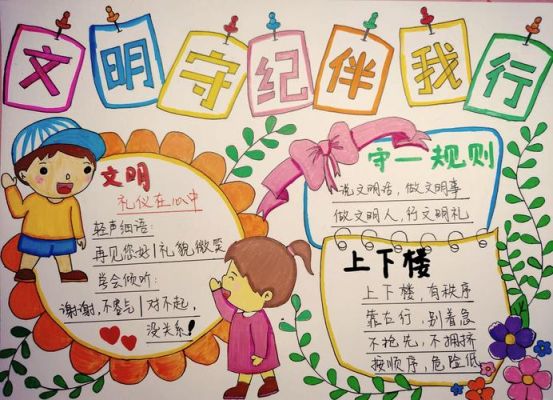 文明守纪伴我行
文明
礼仪在心中
轻声细语:
再见您好|礼貌微笑
学会倾听:
谢谢,不客气|对不起,
没关系!
守一规则
说文明话,做文明事
做文明人,行文明礼
上下楼
上下楼,有秩序
靠右行,别着急
不抢先,不拥挤
按顺序,危险低